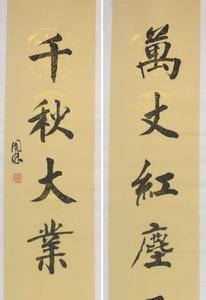 萬丈紅塵
千秋大業